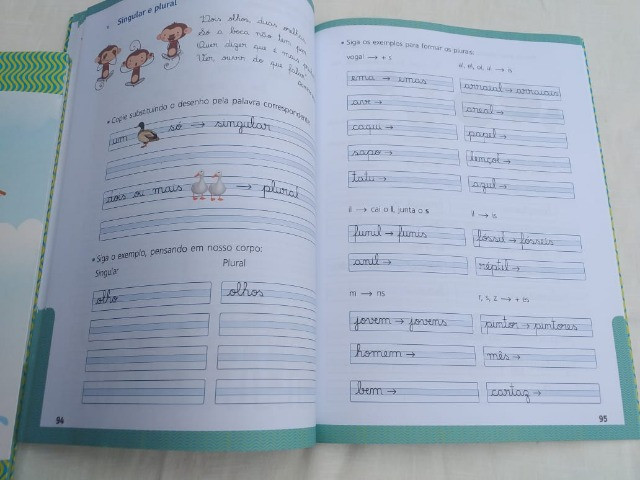 Singular e plural
Dois olhos, duas orelhas
Só a boca não tem par
Quer dizer que é mais
Ver, ouvir do que falar
• Copie substituindo o desenho pela palavra correspondente:
um só → singular
dois ou mais → plural
• Siga o exemplo, pensando em nosso corpo:
Singular Plural
olho olhos
94
• Siga os exemplos para formar os plurais:
vogal → + s
ema → emas
ave →
caqui →
sapo →
tatu →
al, el, ol, ul → is
arraial → arraiais
areal →
papel →
lençol →
azul →
il → cai o l, junta o s
funil → funis
anil →
il → is
fóssil → fósseis
réptil →
m → ns
jovem → jovens
homem →
bem →
r, s, z → + es
pintor → pintores
mês →
cartaz →
95